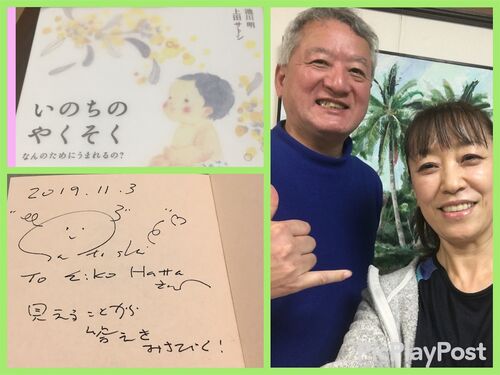 池川 明
上田サトシ
いのちの
やくそく
なんのためにうまれるの?
2019.11.3
Satoshi
To Eiko Hatta
見えることから
答えを
PlayPost